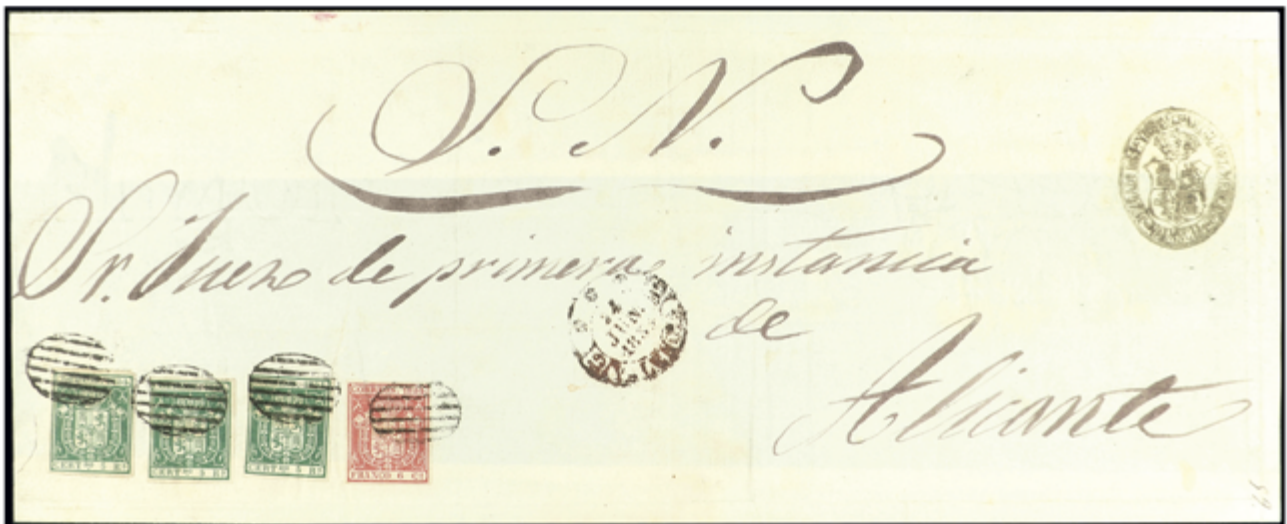 S. N.
Sr. Juez de primera instancia
de
Alicante
4
JUN
CERT.DO 5 RS
CERT.DO 5 RS
CERT.DO 5 RS
CORREOS 1854
FRANCO 6 CS